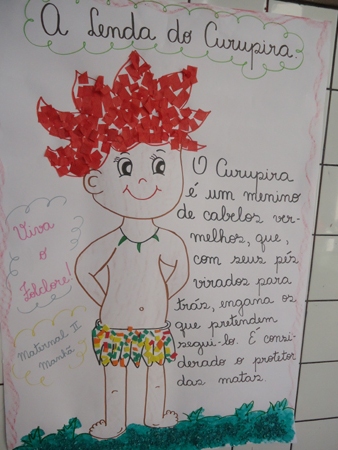 A Lenda do Curupira.
O Curupira
é um menino
de cabelos ver-
melhos, que,
com seus pés
virados para
trás, engana os
que pretendem
segui-lo. É consi-
derado o protetor
das matas.
Viva
o
Folclore!
Maternal II
Manhã